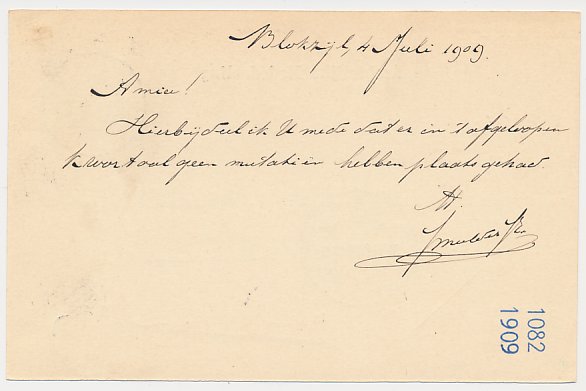 Blokzijl, 4 Juli 1909.
Amice!
Hierbij deel ik U mede dat er in 't afgeloopen
kwartaal geen mutatien hebben plaats gehad
tt.
Smulder Jr.
1082
1909